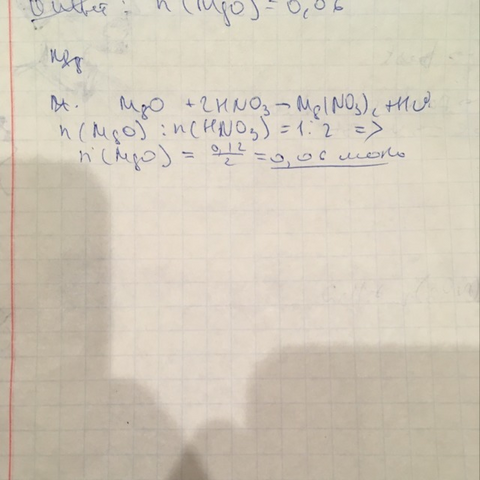 Ответ: n(MgO)=0,06
Mg
MgO + 2HNO₃ → Mg(NO₃)₂ + H₂O
n(MgO) : n(HNO₃) = 1 : 2 =>
n(MgO) = 0,12/2 = 0,06 моль